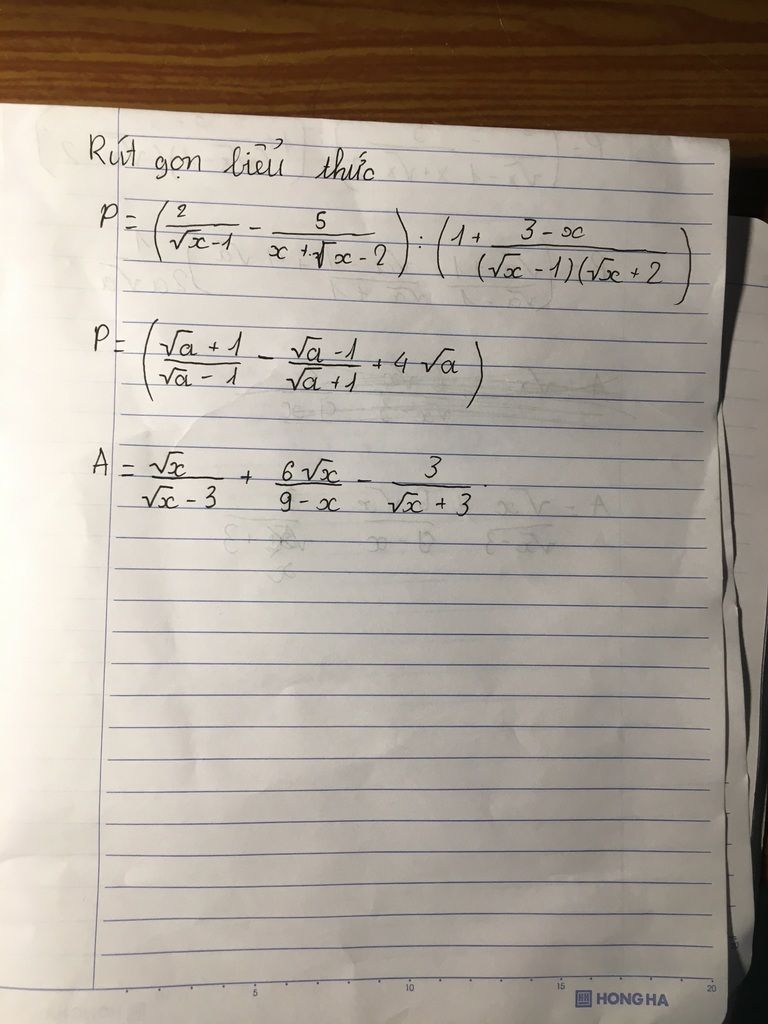 Rút gọn biểu thức
P = (2/(√x-1) - 5/(x+√x-2)) : (1 + (3-x)/((√x-1)(√x+2)
P = ((√a+1)/(√a-1) - (√a-1)/(√a+1) + 4√a)
A = √x/(√x-3) + 6√x/(9-x) - 3/(√x+3)
5 10 15 20
HH HONG HA